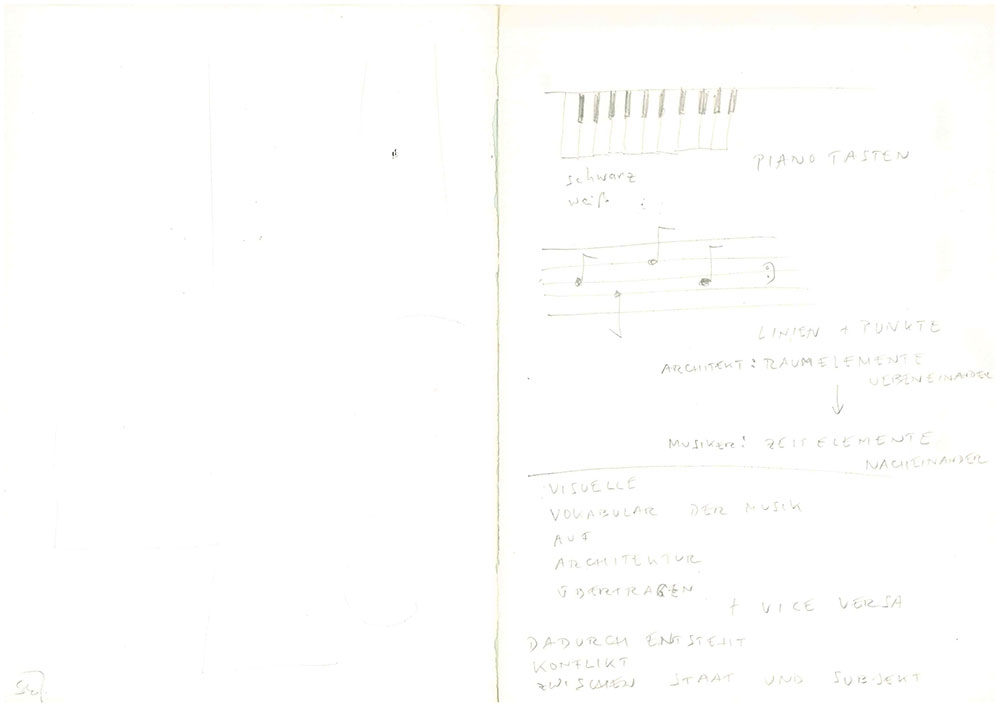 PIANO TASTEN
schwarz
weiß :
LINIEN + PUNKTE
ARCHITEKT: RAUMELEMENTE
UEBEREINANDER
MUSIKER: ZEITELEMENTE
NACHEINANDER
VISUELLE
VOKABULAR DER MUSIK
AUF
ARCHITEKTUR
ÜBERTRAGEN
+ VICE VERSA
DADURCH ENTSTEHT
KONFLIKT
ZWISCHEN STAAT UND SUBJEKT